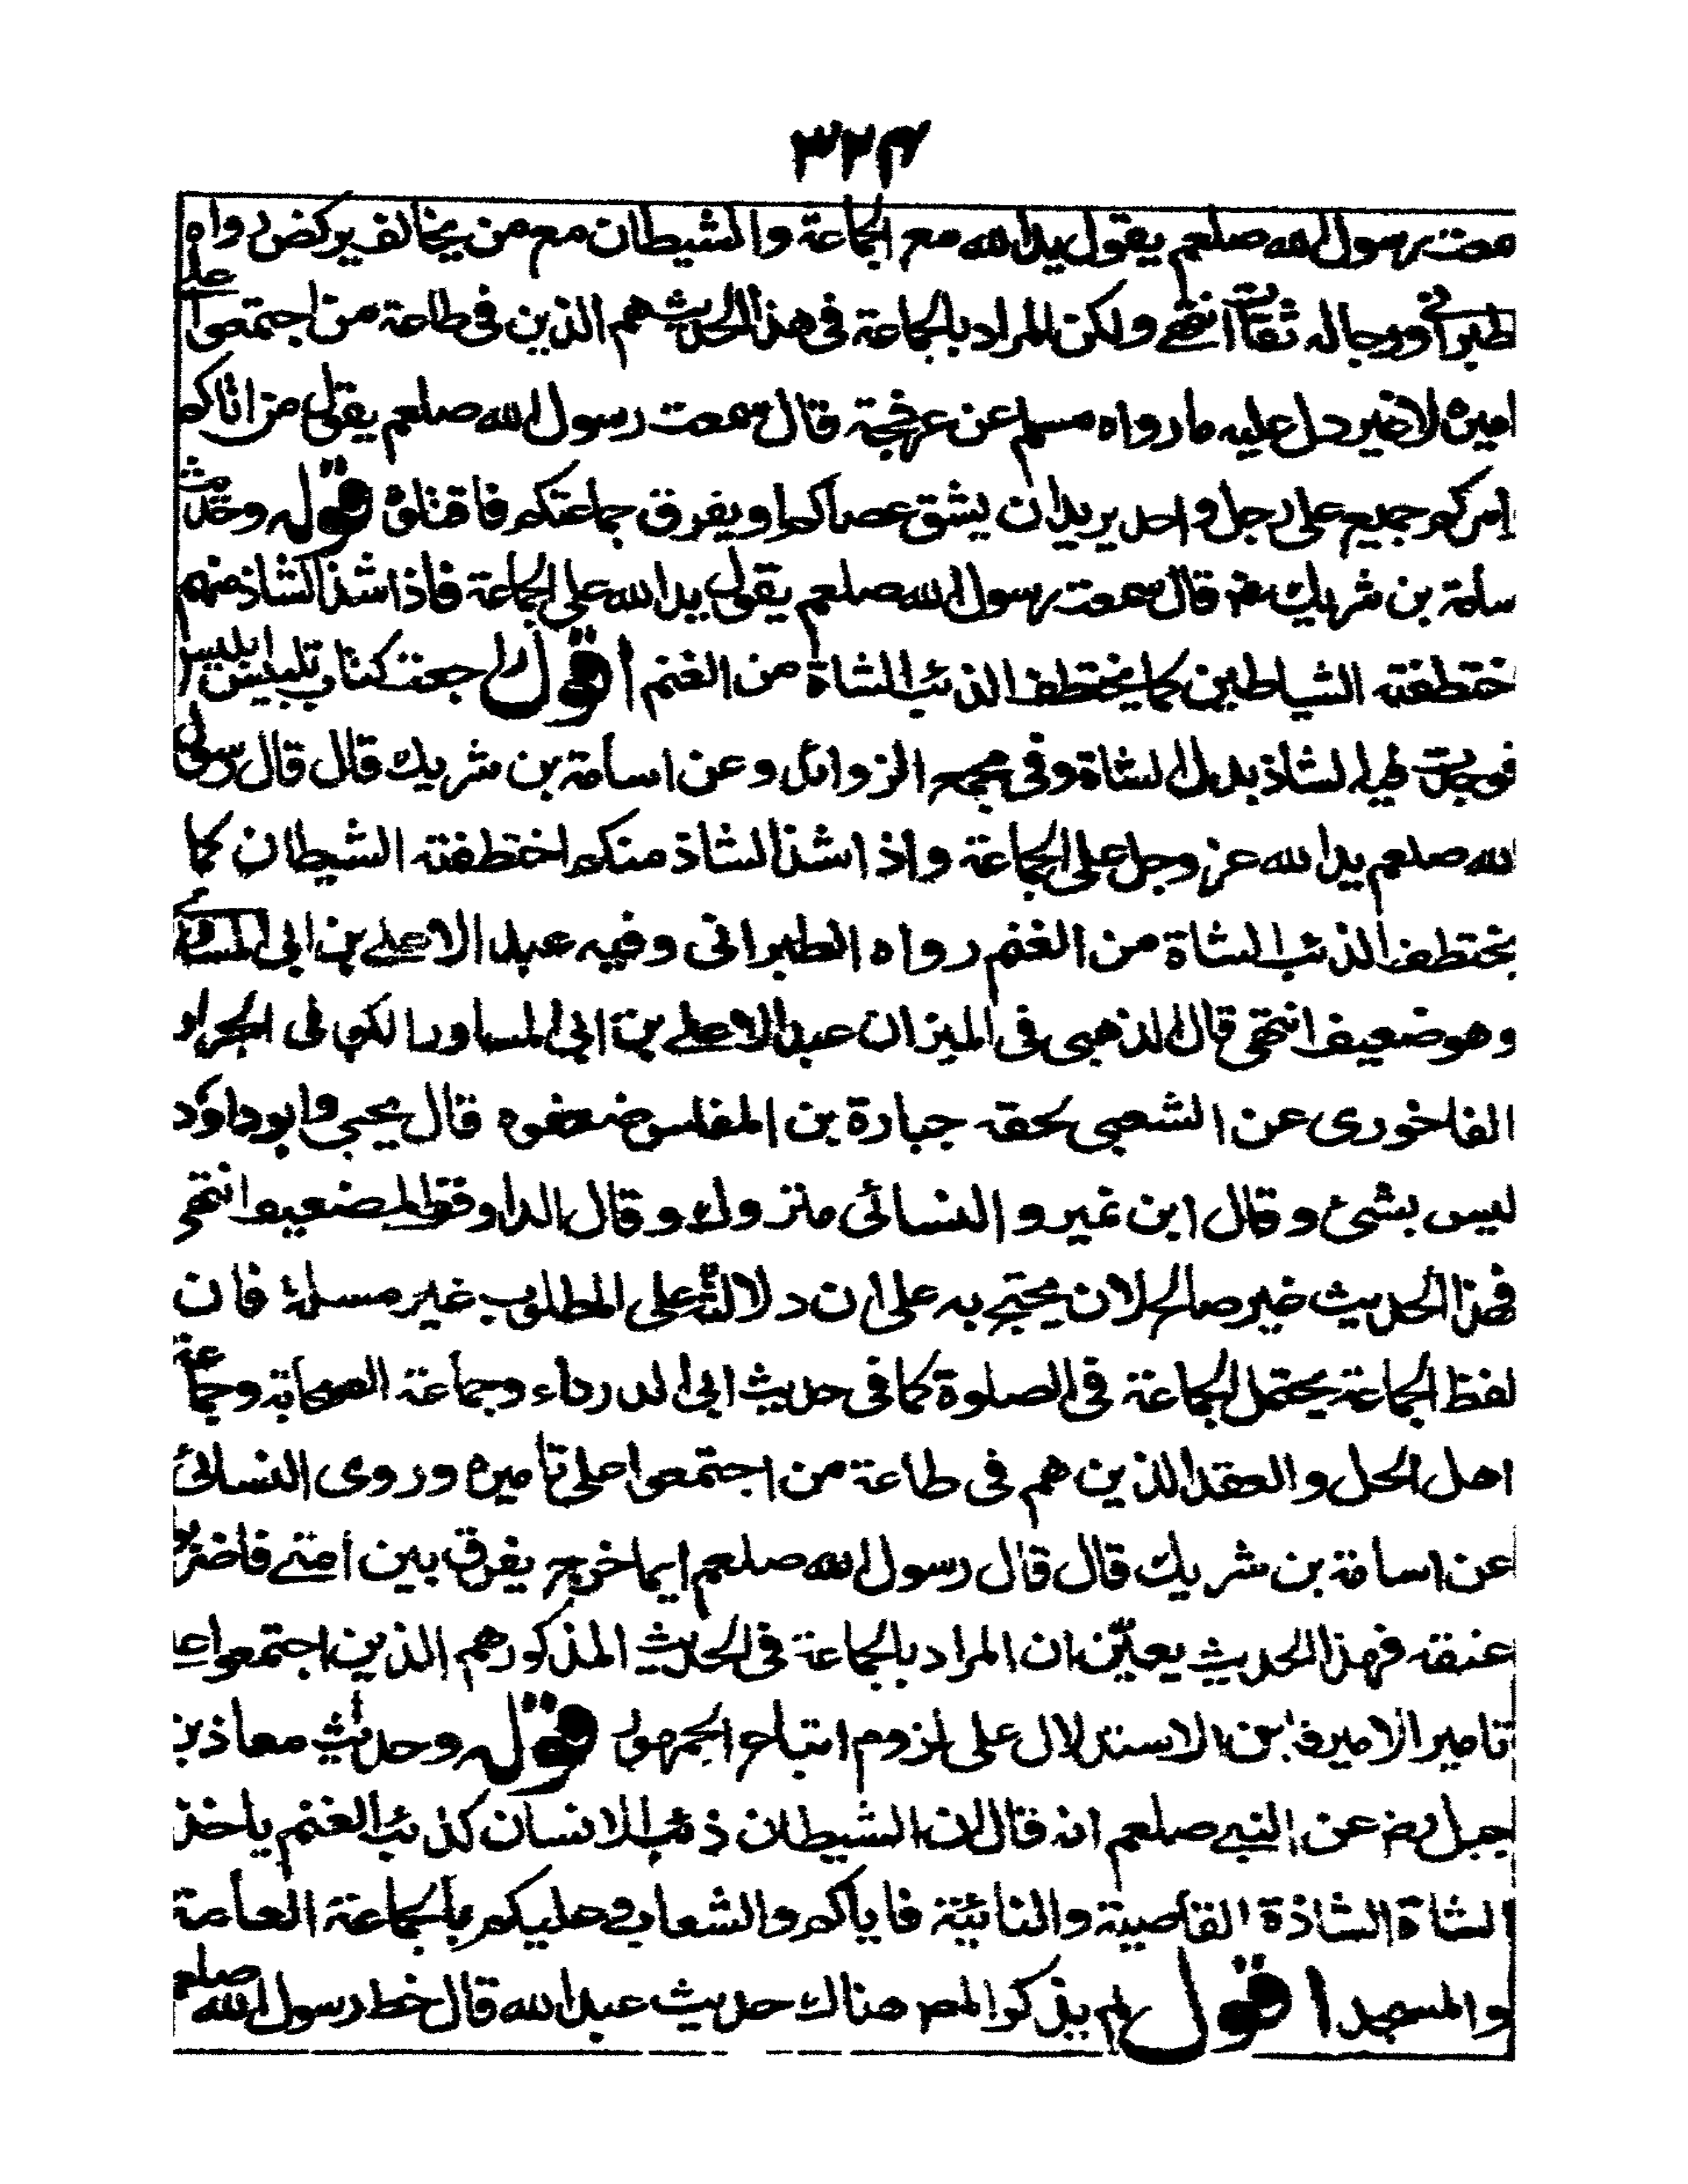 ٣٢٤
معت رسول الله صلعم يقول يد الله مع الجماعة والشيطان مع من يخالف يركض رواه
طبراني ورجاله ثقات انتهى ولكن المراد بالجماعة في هذا الحديث هم الذين في طاعة من اجتمعوا على
اميره لا غير دل عليه ما رواه مسلم عن عرفجة قال سمعت رسول الله صلعم يقول من اتاكم
امركم جميع على رجل واحد يريد ان يشق عصاكم او يفرق جماعتكم فاقتلوه قوله وحديث
سامة بن شريك رض قال سمعت رسول الله صلعم يقول يد الله على الجماعة فاذا شذ الشاذ منهم
ختطفته الشياطين كما يختطف الذئب الشاة من الغنم اقول راجعت كتاب تلبيس ابليس
فوجدت فيه الشاذ بدل الشاة وفي مجمع الزوائد وعن اسامة بن شريك قال قال رسول
لله صلعم يد الله عز وجل على الجماعة واذا شذ الشاذ منكم اختطفته الشيطان كما
يختطف الذئب الشاة من الغنم رواه الطبراني وفيه عبد الاعلى بن ابي المساور
وهو ضعيف انتهى قال الذهبي في الميزان عبد الاعلى بن ابي المساور الكوفي الجرار
الفاخوري عن الشعبي لحقه جبارة بن المغلس ضعفوه قال يحيى وابو داؤد
ليس بشئ وقال ابن نمير و النسائى متروك وقال الدارقطني ضعيف انتهى
فهذا الحديث غير صالح لان يحتج به على ان دلالته على المطلوب غير مسلمة فان
لفظ الجماعة يحتمل الجماعة في الصلوة كما في حديث ابي الدرداء وجماعة الصحابة وجماعة
اهل الحل والعقد الذين هم في طاعة من اجتمعوا على تاميره وروى النسائى
عن اسامة بن شريك قال قال رسول الله صلعم ايما خرج يفرق بين امتى فاضربوا
عنقه فهذا الحديث يعيّن ان المراد بالجماعة في الحديث المذكور هم الذين اجتمعوا على
تامير الامير فاين الاستدلال على لزوم اتباع الجمهور قوله وحديث معاذ بن
جبل رض عن النبي صلعم انه قال ان الشيطان ذئب الانسان كذئب الغنم ياخذ
الشاة الشاذة القاصية والنائية فاياكم والشعاب وعليكم بالجماعة العامة
والمسجد اقول لم يذكر المص هناك حديث عبد الله قال خط رسول الله صلعم